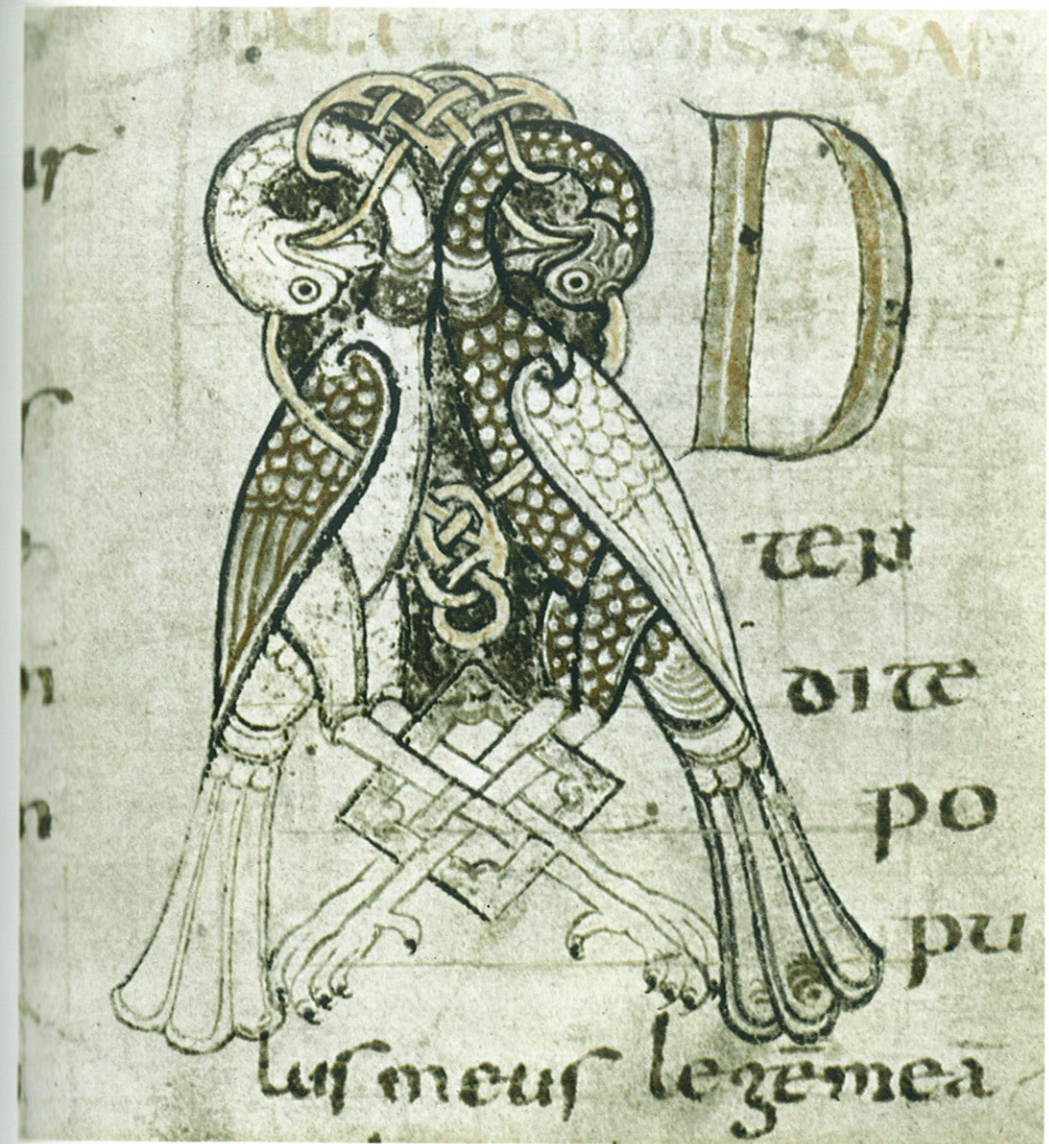 AD
ten
dite
po
pu
lus meus legē mea